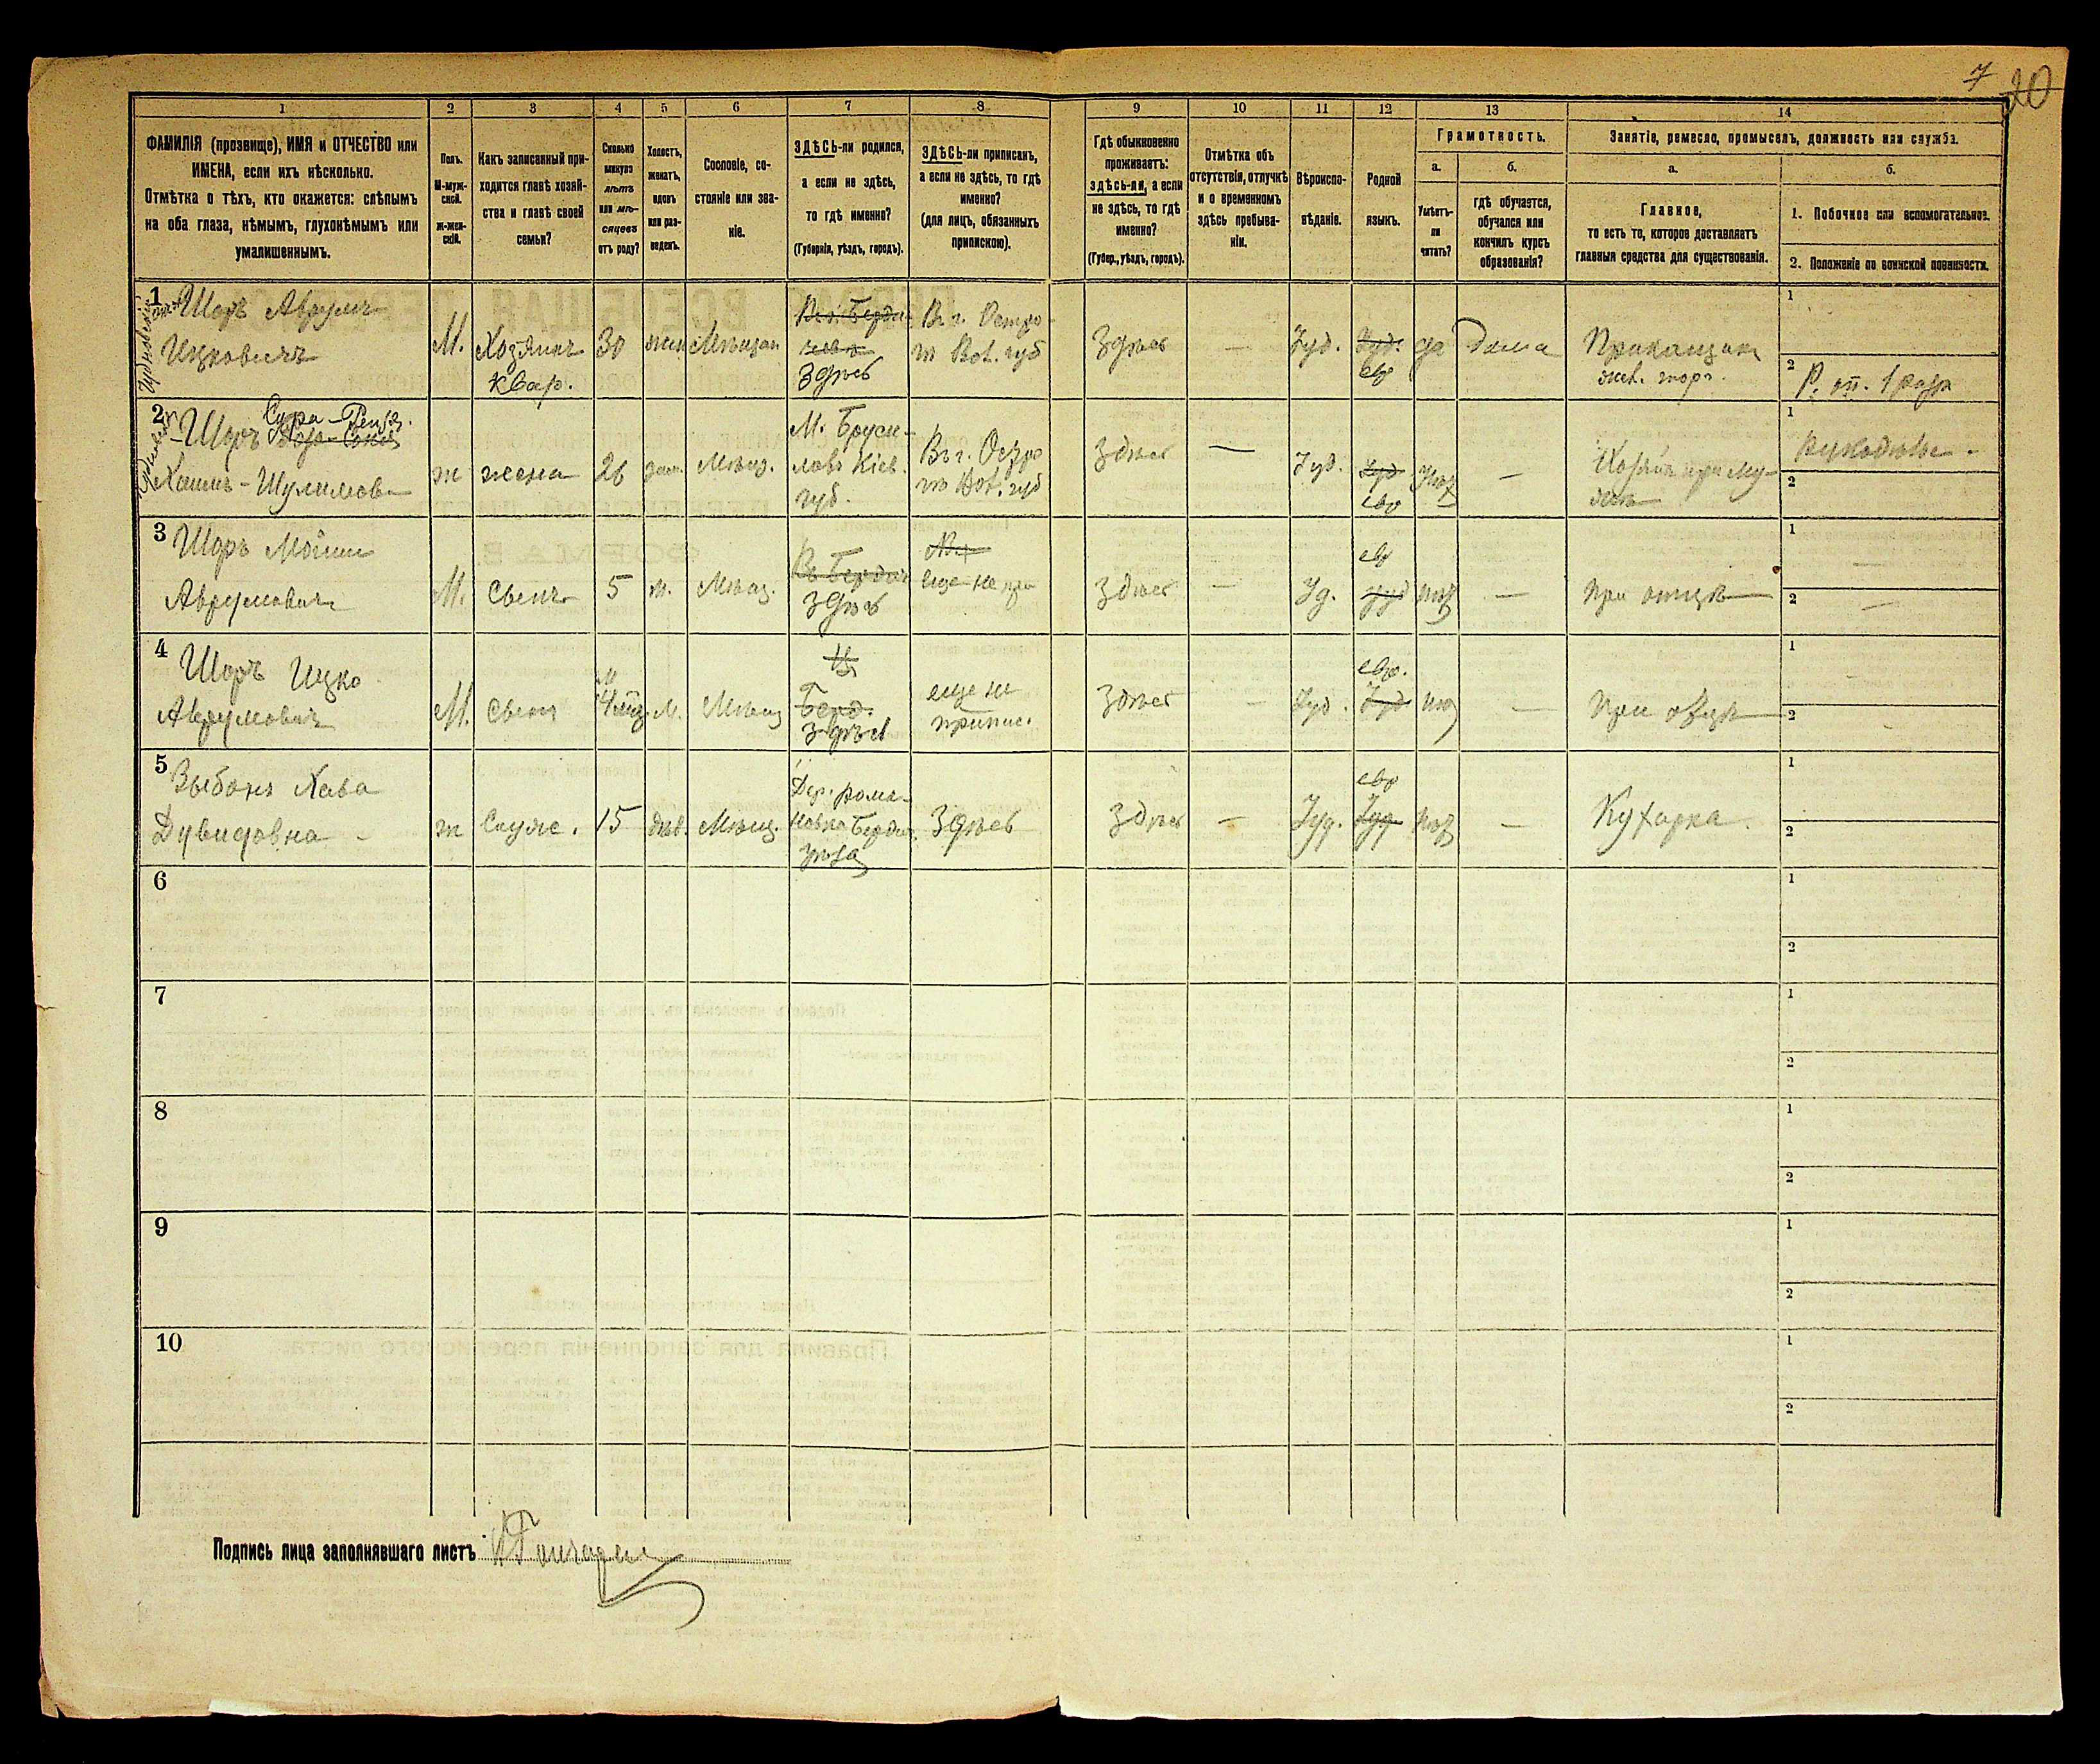 7 20
1 2 3 4 5 6 7 8 9 10 11 12 13 14
ФАМИЛІЯ (прозвище), ИМЯ и ОТЧЕСТВО или
ИМЕНА, если ихъ нѣсколько.
Отмѣтка о тѣхъ, кто окажется: слѣпымъ
на оба глаза, нѣмымъ, глухонѣмымъ или
умалишеннымъ.
Полъ.
М-муж-
ской.
Ж-жен-
скій.
Какъ записанный при-
ходится главѣ хозяй-
ства и главѣ своей
семьи?
Сколько
минуло
лѣтъ
или мѣ-
сяцевъ
отъ роду?
Холостъ,
женатъ,
вдовъ
или раз-
веденъ.
Сословіе, со-
стояніе или зва-
ніе.
ЗДѢСЬ-ли родился,
а если не здѣсь,
то гдѣ именно?
(Губернія, уѣздъ, городъ).
ЗДѢСЬ-ли приписанъ,
а если не здѣсь, то гдѣ
именно?
(для лицъ, обязанныхъ
припискою).
Гдѣ обыкновенно
проживаетъ:
здѣсь-ли, а если
не здѣсь, то гдѣ
именно?
(Губер., уѣздъ, городъ).
Отмѣтка объ
отсутствіи, отлучкѣ
и о временномъ
здѣсь пребыва-
ніи.
Вѣроиспо-
вѣданіе.
Родной
языкъ.
Грамотность.
а.
Умѣетъ-
ли
читать?
б.
гдѣ обучается,
обучался или
кончилъ курсъ
образованія?
Занятіе, ремесло, промыселъ, должность или служба.
а.
Главное,
то есть то, которое доставляетъ
главныя средства для существованія.
б.
1. Побочное или вспомогательное.
2. Положеніе по воинской повинности.
1 Шоръ Аврумъ
Ицковичъ
М.
Хозяинъ
квар.
30
жен
Мѣщан
Въ г. Берди-
чевѣ
здѣсь
Въ г. Остро-
гѣ Вол. губ
здѣсь
—
Іуд.
Іуд.
евр
да
дома
Прикащикъ
1
2
1 разр
2 Шоръ
Хаимъ-Шулимовна
Сура-
ж
жена
26
зам.
Мѣщ.
М. Бруси-
ловъ Кіев.
губ.
Въ г. Остро
гѣ Вол. губ
здѣсь
—
Іуд.
Іуд
евр
нѣт
—
при му-
жѣ
1
рукодѣлье -
2
3 Шоръ Мойше
Аврумовичъ
М.
Сынъ
5
х.
Мѣщ.
Въ Бердич
здѣсь
еще не при
здѣсь
—
Іуд.
евр
іуд
нѣт
—
при отцѣ
1 —
2 —
4 Шоръ Ицко
Аврумовичъ
М.
Сынъ
4 мѣс.
Мѣщ
Берд.
здѣсь
еще не
припис.
здѣсь
-
Іуд.
евр.
Іуд
нѣт
—
При отцѣ
1 -
2 -
5 Зыбанъ Хава
Дувидовна -
ж
Служ.
15
дѣв.
Мѣщ.
Дер. Рома-
новка Бердич.
уѣзд
Здѣсь
здѣсь
—
Іуд.
евр
Іуд
нѣт
—
Кухарка
1
2
6 1
2
7 1
2
8 1
2
9 1
2
10 1
2
Подпись лица заполнявшаго листъ